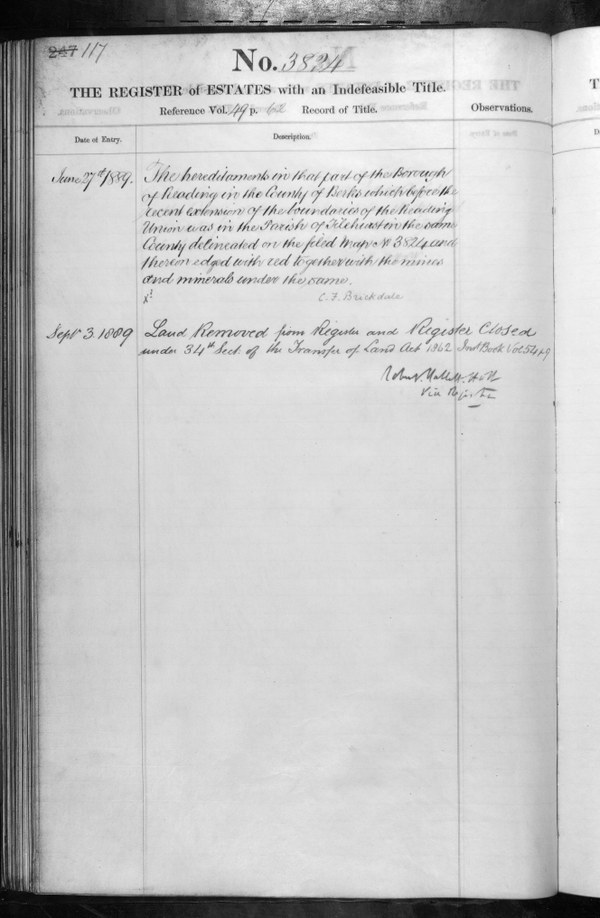 247 117
No. 3824
THE REGISTER of ESTATES with an Indefeasible Title.
Reference Vol. 49 p. 62 Record of Title.
Observations.
Date of Entry.
Description.
June 27th 1889. The hereditaments in that part of the Borough
of Reading in the County of Berks which before the
recent extension of the boundaries of the Reading
Union was in the Parish of Tilehurst in the same
County delineated on the filed Map No 3824 and
thereon edged with red together with the mines
and minerals under the same.
C. F. Brickdale
Septr 3. 1889 Land Removed from Register and Register Closed
under 34th Sect. of the Transfer of Land Act 1862 Inst Book Vol 54
Robert Hallett Holt
Vice Registrar